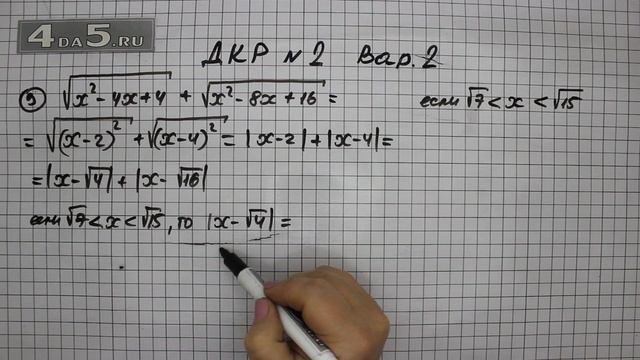 4DA5.RU
ДКР №2 Вар. 2
9) √(x² - 4x + 4) + √(x² - 8x + 16) = если √7 < x < √15
= √(x-2)² + √(x-4)² = |x-2| + |x-4| =
= |x-√4| + |x-√16|
если √7 < x < √15, то |x-√4| =